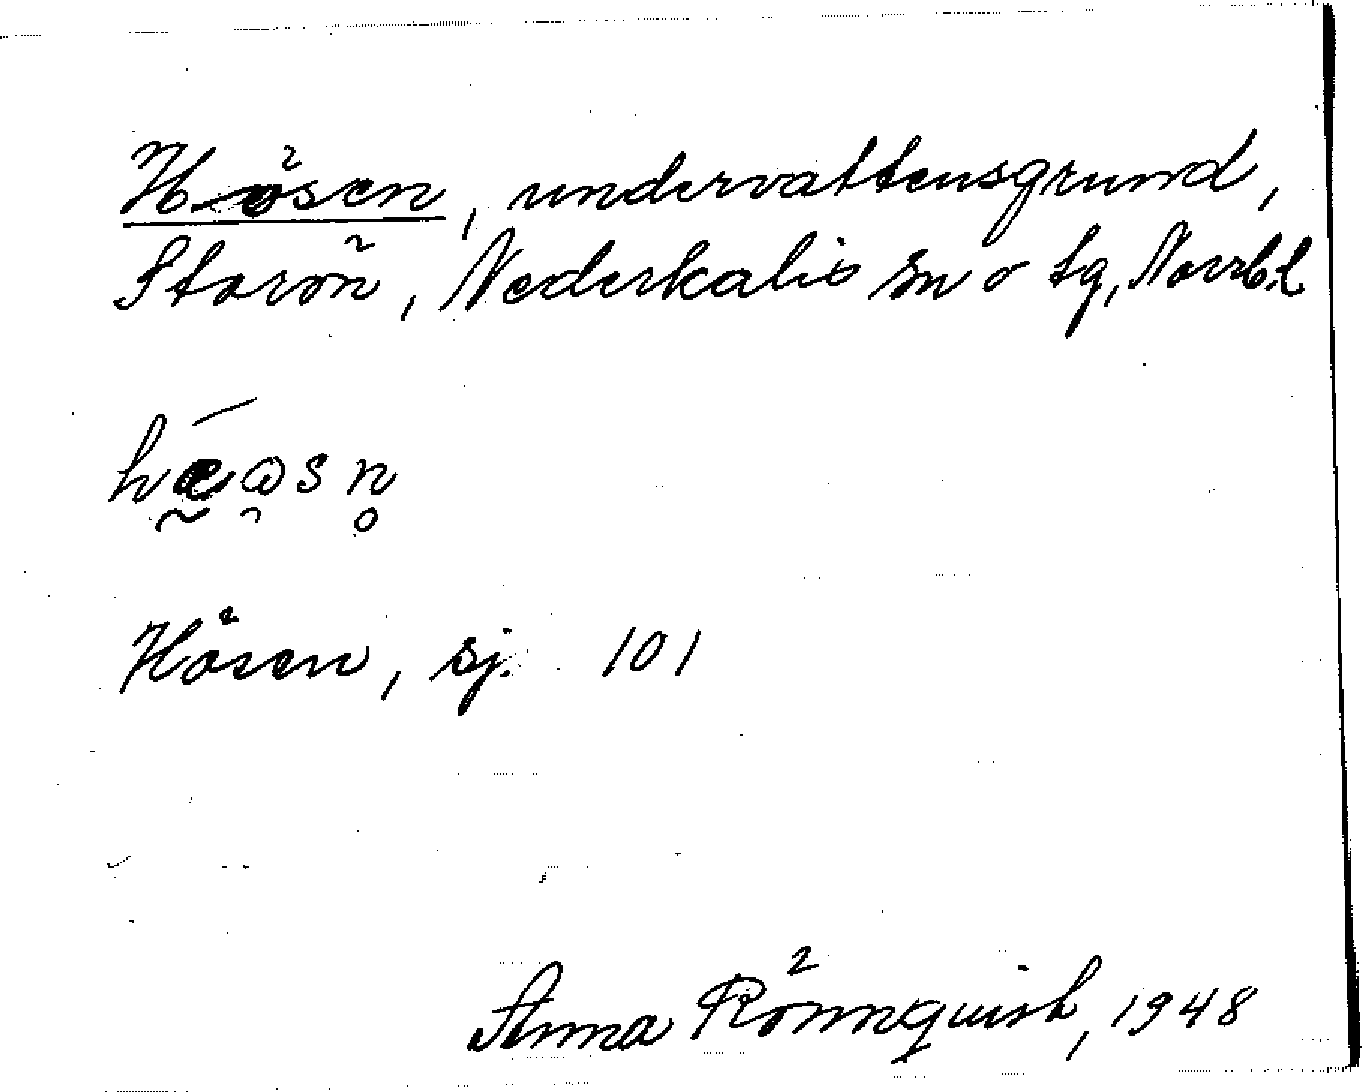 Hösen, undervattensgrund,
Storön, Nederkalix sn o tg, Norrb.l
hæɷsn̥
Håsen, sj. 101
Anna Rönnquist, 1948